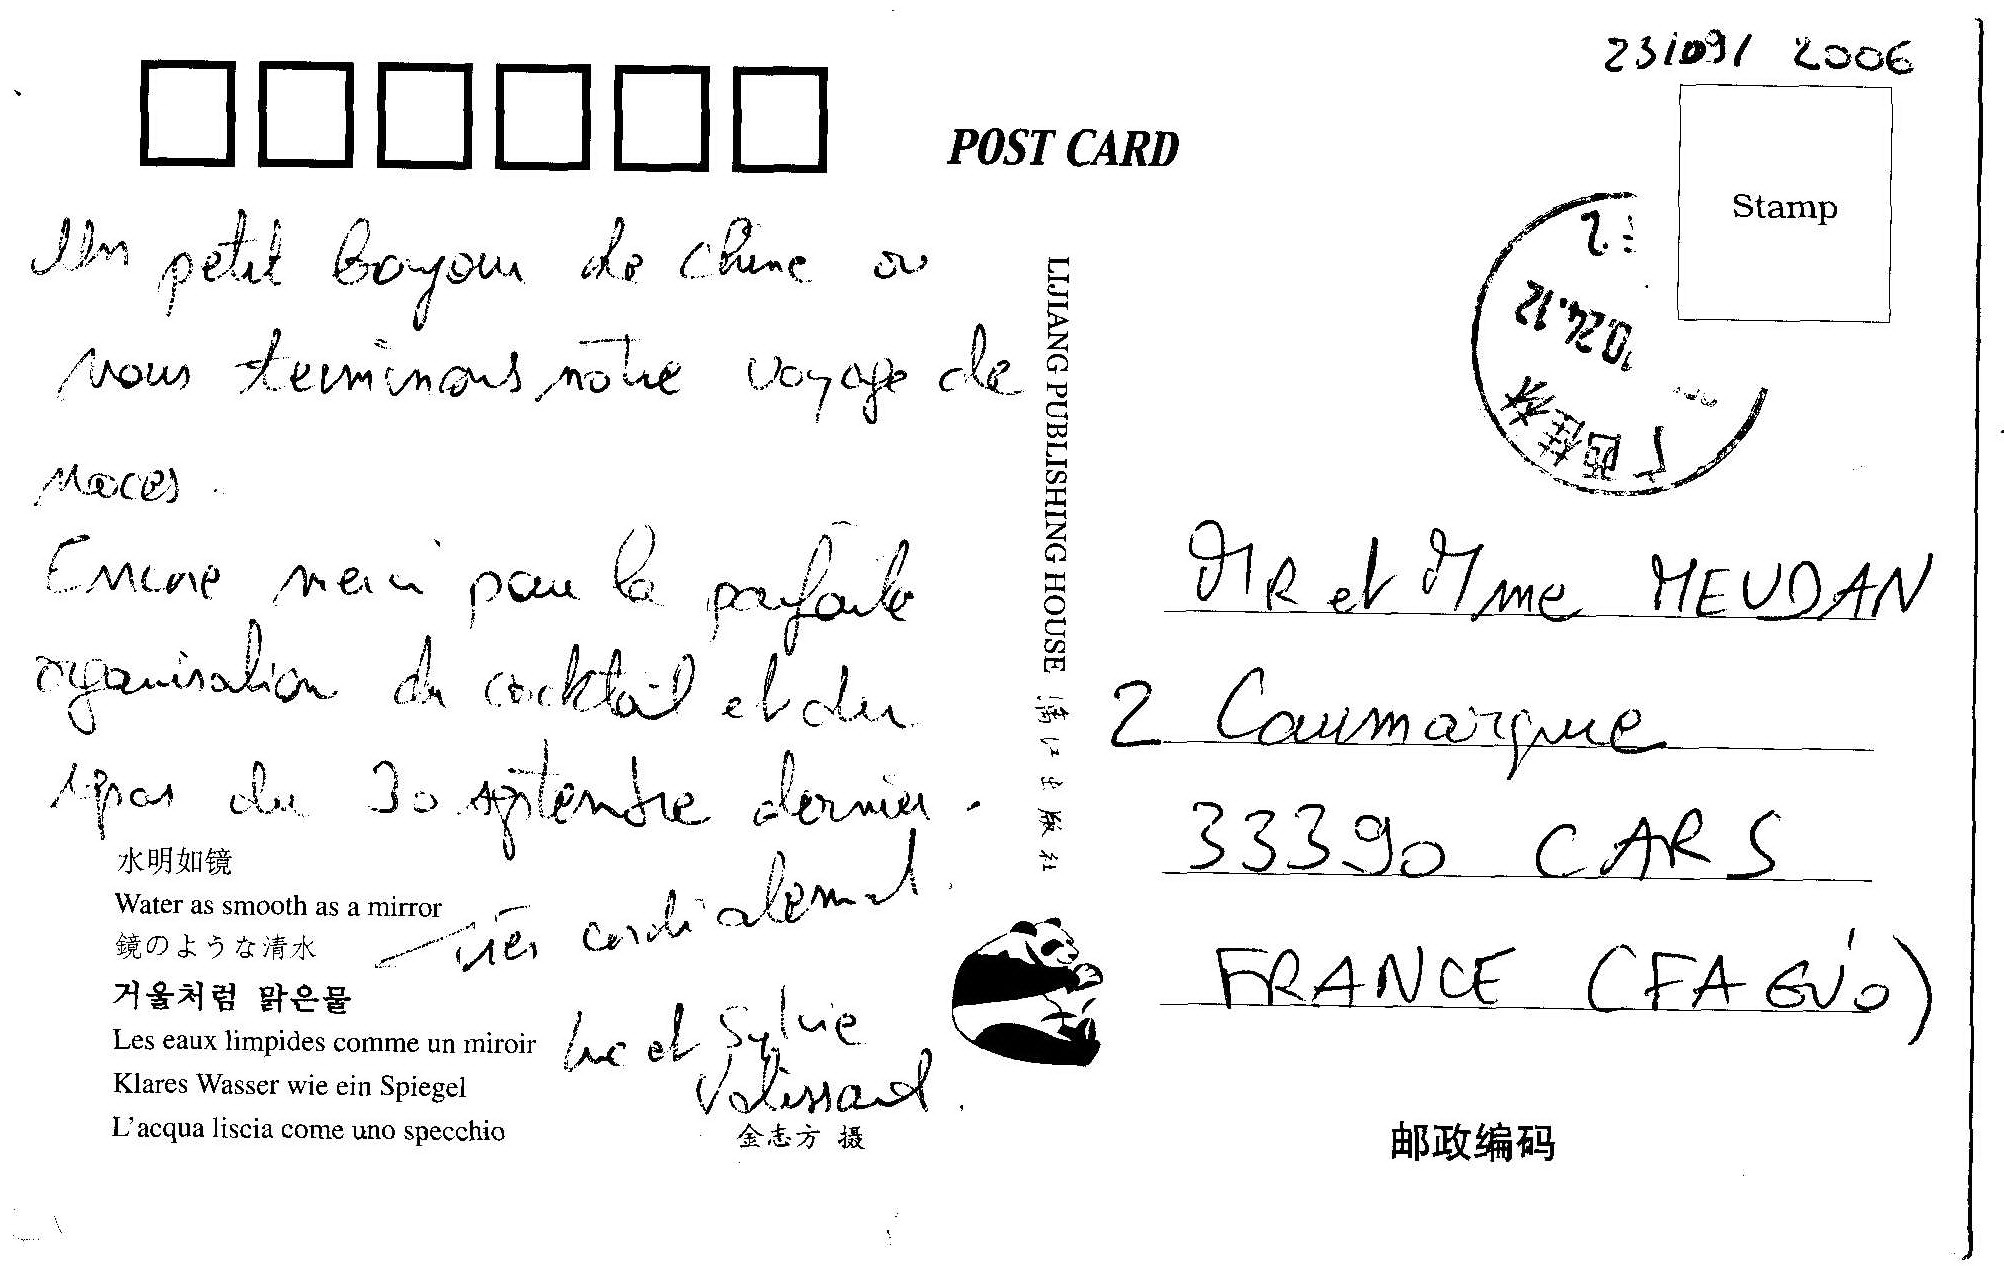 2006
POST CARD
Stamp
广西桂林
Un petit bonjour de Chine où
nous terminons notre voyage de
noces.
Encore merci pour la parfaite
organisation du cocktail et du
repas du 30 septembre dernier.
Très cordialement.
Luc et Sylvie
水明如镜
Water as smooth as a mirror
鏡のような清水
거울처럼 맑은물
Les eaux limpides comme un miroir
Klares Wasser wie ein Spiegel
L'acqua liscia come uno specchio
金志方 摄
LIJIANG PUBLISHING HOUSE 漓江出版社
MR et Mme MEUDAN
2 Caumarque
33390 CARS
FRANCE
邮政编码